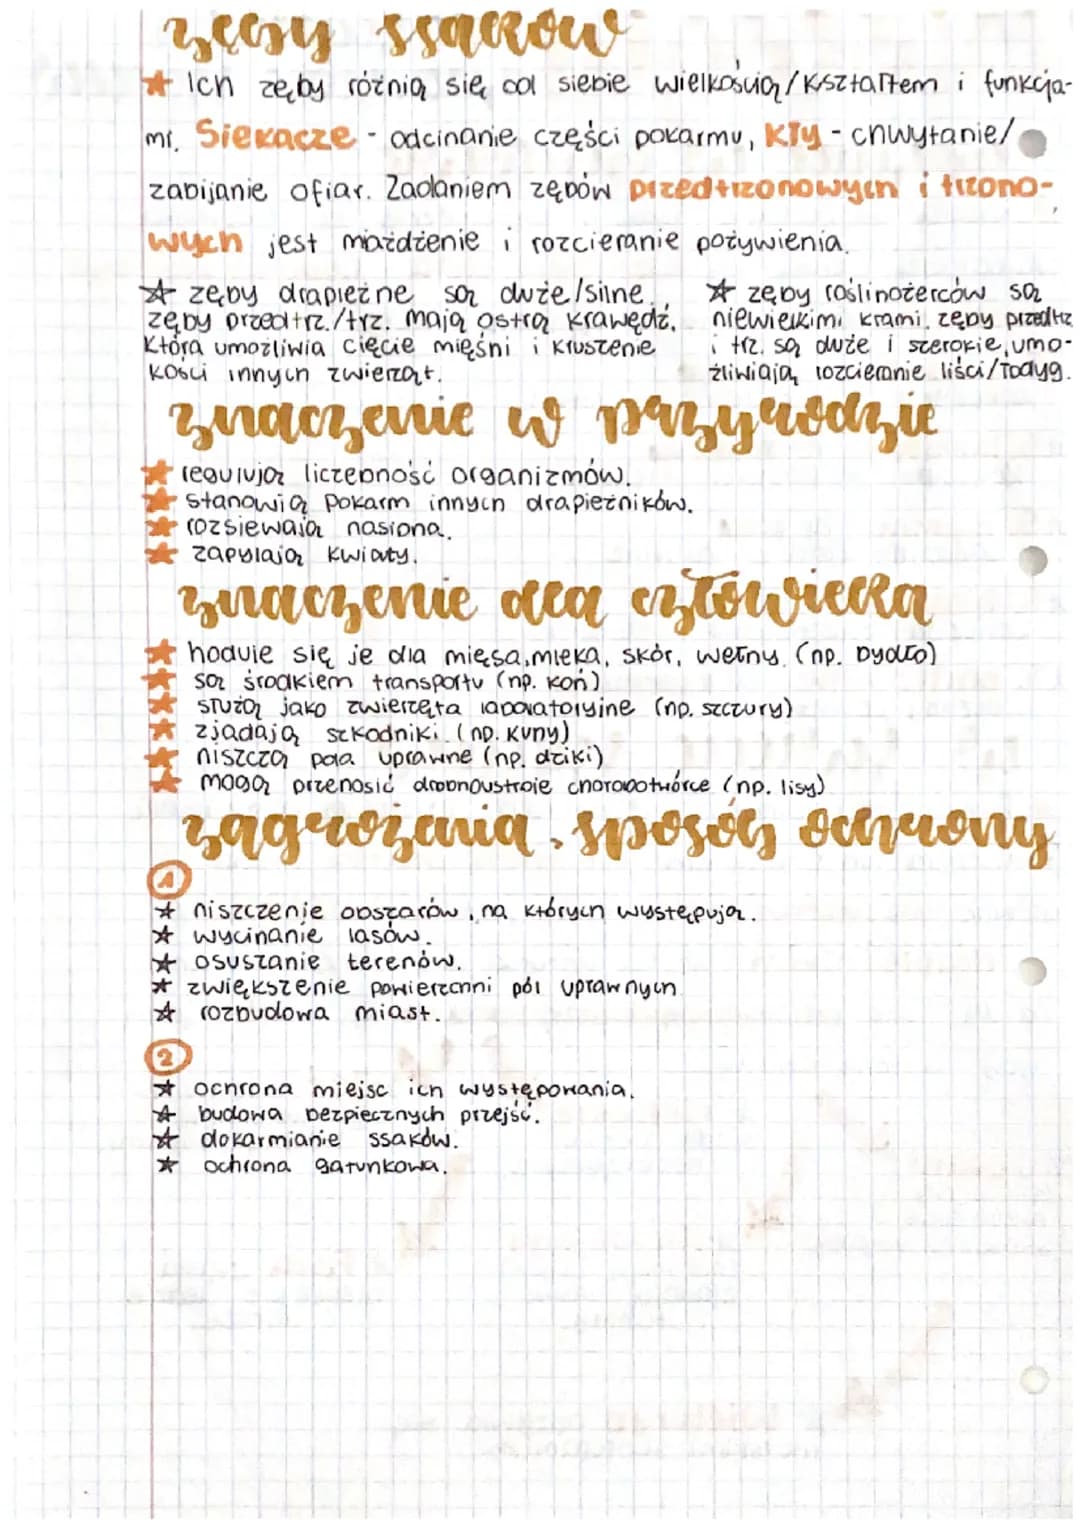 zęby ssaków
★ Ich zęby różnią się od siebie wielkością/kształtem i funkcja-
mi. Siekacze - odcinanie części pokarmu, Kły - chwytanie/
zabijanie ofiar. Zadaniem zębów przedtrzonowych i trzono-
wych jest miażdżenie i rozcieranie pożywienia.
☆ zęby drapieżne są duże/silne.
zęby przedtrz./trz. mają ostrą krawędź,
która umożliwia cięcie mięśni i kruszenie
kości innych zwierząt.
☆ zęby roślinożerców są
niewielkimi krami, zęby przedtrz
i trz. są duże i szerokie, umo-
żliwiają rozcieranie liści/łodyg.
znaczenie w przyrodzie
★ regulują liczebność organizmów.
★ stanowią pokarm innych drapieżników.
★ rozsiewają nasiona.
★ zapylają kwiaty.
znaczenie dla człowieka
★ hoduje się je dla mięsa, mleka, skór, wełny. (np. bydło)
★ są środkiem transportu (np. koń)
★ służą jako zwierzęta laboratoryjne (np. szczury)
★ zjadają szkodniki. (np. kuny)
★ niszczą pola uprawne (np. dziki)
★ mogą przenosić drobnoustroje chorobotwórce (np. lisy)
zagrożenia, sposób ochrony
1
☆ niszczenie obszarów, na których występują.
☆ wycinanie lasów.
☆ osuszanie terenów.
☆ zwiększenie powierzchni pól uprawnych
☆ rozbudowa miast.
2
☆ ochrona miejsc ich występowania.
☆ budowa bezpiecznych przejść.
☆ dokarmianie ssaków.
☆ ochrona gatunkowa.